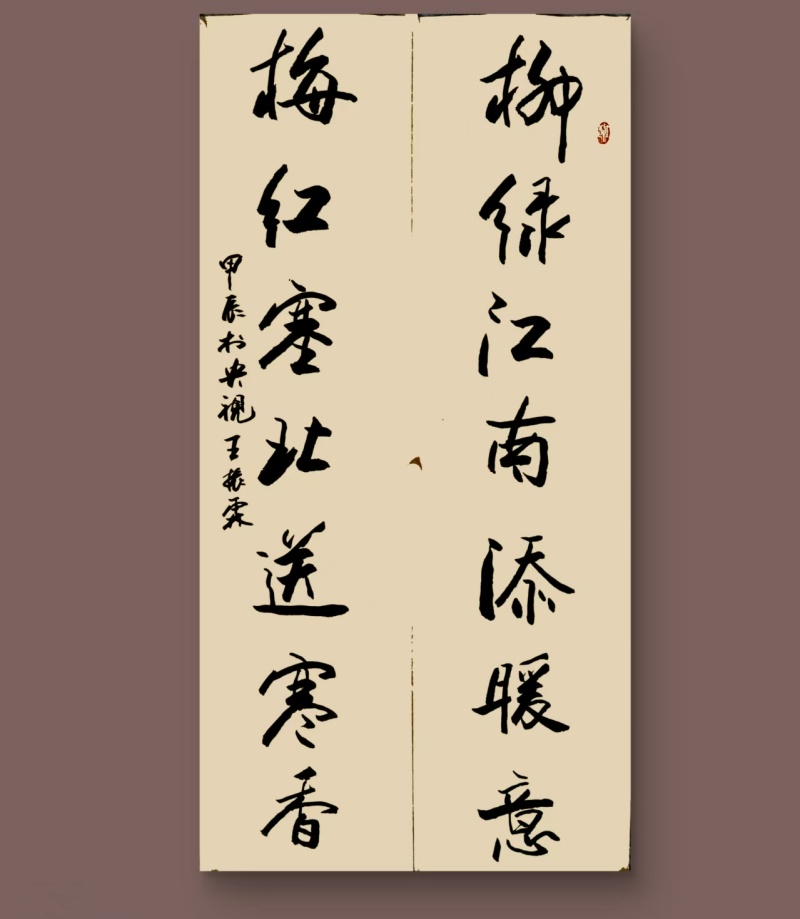 柳绿江南添暖意
梅红塞北送寒香
甲辰于央视王振霖